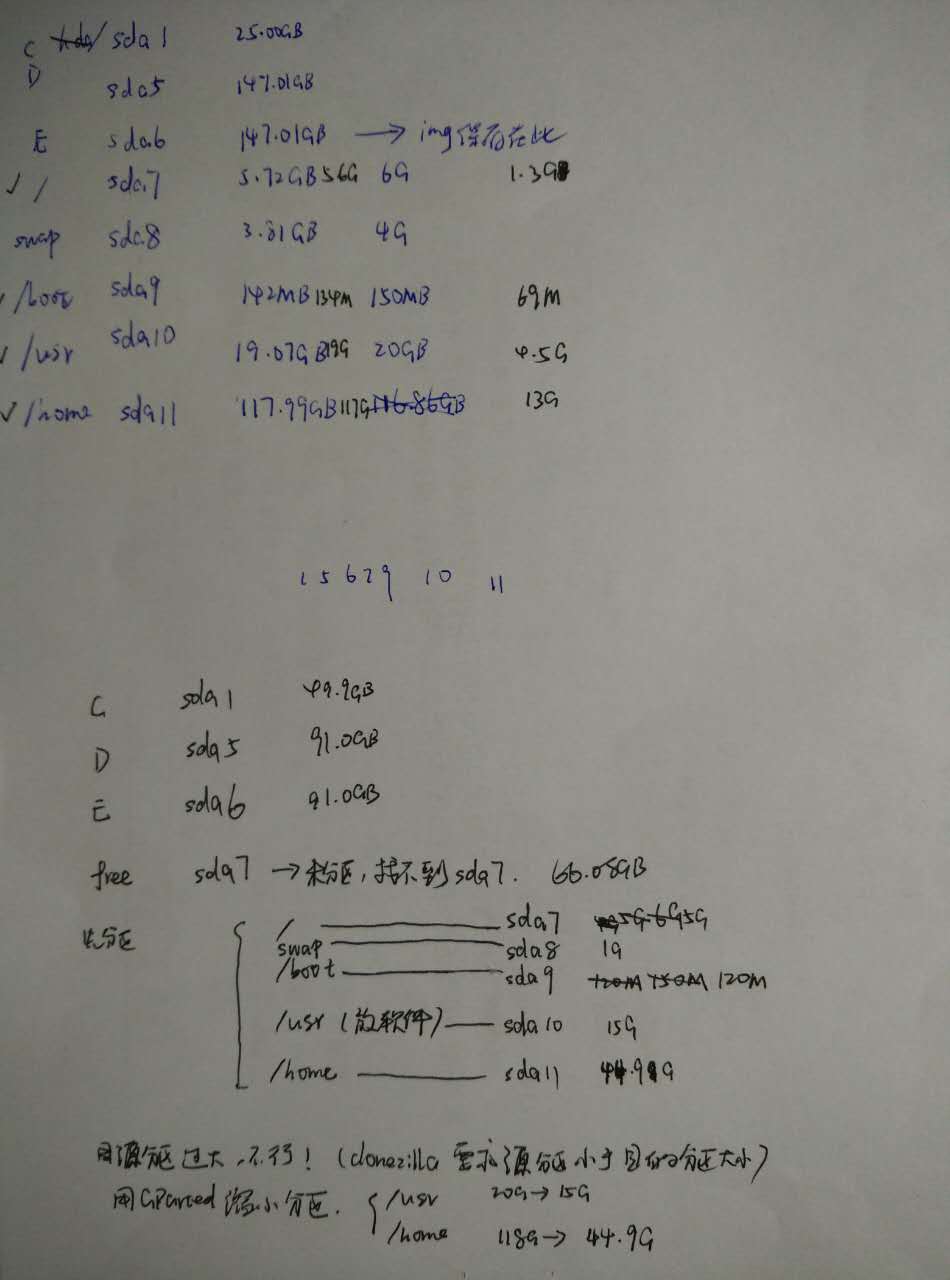 C sda1 25.00GB
D sda5 147.01GB
E sda6 147.01GB → img保存在此
✓ / sda7 5.72GB 56G 6G 1.3G
swap sda8 3.81GB 4G
✓ /boot sda9 142MB 134M 150MB 69M
✓ /usr sda10 19.07GB 19G 20GB 4.5G
✓ /home sda11 117.99GB 117G 116.86GB 13G
1 5 6 7 9 10 11
C sda1 49.9GB
D sda5 91.0GB
E sda6 91.0GB
free sda7 → 未分区，找不到sda7. 66.08GB
先分区 { / — sda7 5G 6G 5G
swap — sda8 1G
/boot — sda9 120M 150M 120M
/usr (放软件) — sda10 15G
/home — sda11 44.9G
因源分区过大，不行！(clonezilla 要求源分区小于目的分区大小)
用GParted 缩小分区. { /usr 20G → 15G
/home 118G → 44.9G